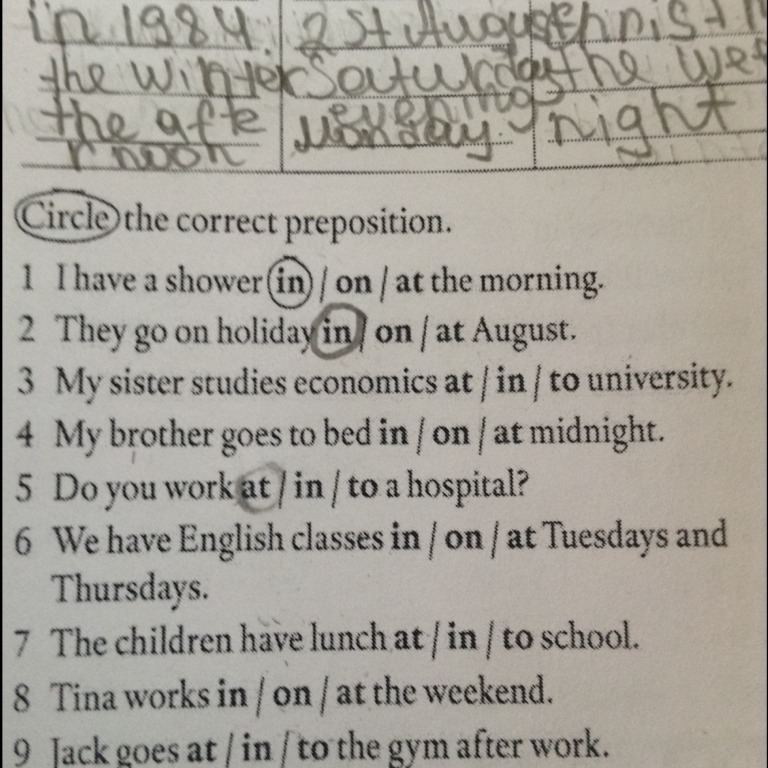 in 1984. 21st August Christm
the winter Saturday the wee
evening
the afte Monday. night
rnoon
Circle the correct preposition.
1 I have a shower in / on / at the morning.
2 They go on holiday in / on / at August.
3 My sister studies economics at / in / to university.
4 My brother goes to bed in / on / at midnight.
5 Do you work at / in / to a hospital?
6 We have English classes in / on / at Tuesdays and
Thursdays.
7 The children have lunch at / in / to school.
8 Tina works in / on / at the weekend.
9 Jack goes at / in / to the gym after work.